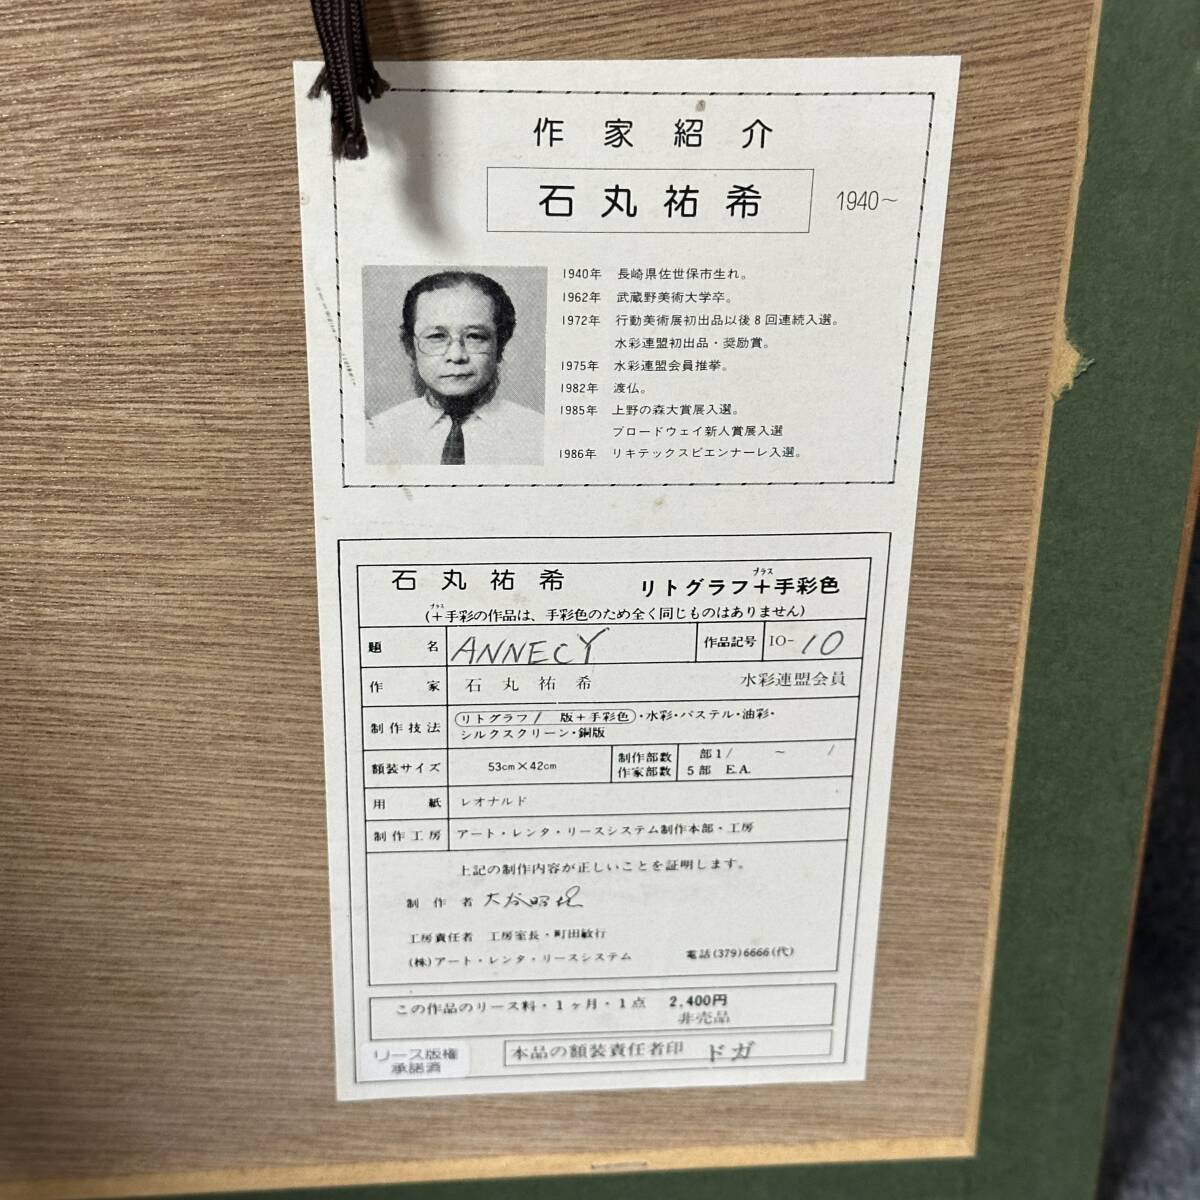 作家紹介
石丸祐希 1940～
1940年 長崎県佐世保市生れ。
1962年 武蔵野美術大学卒。
1972年 行動美術展初出品以後8回連続入選。
水彩連盟初出品・奨励賞。
1975年 水彩連盟会員推挙。
1982年 渡仏。
1985年 上野の森大賞展入選。
ブロードウェイ新人賞展入選
1986年 リキテックスビエンナーレ入選。
石丸祐希 リトグラフ+手彩色
プラス
(+手彩の作品は、手彩色のため全く同じものはありません)
プラス
題名 ANNECY 作品記号 IO-10
作家 石丸祐希 水彩連盟会員
制作技法 リトグラフ/ 版+手彩色・水彩・パステル・油彩・
シルクスクリーン・銅版
額装サイズ 53cm×42cm 制作部数 部1/ ～ /
作家部数 5部 E.A.
用紙 レオナルド
制作工房 アート・レンタ・リースシステム制作本部・工房
上記の制作内容が正しいことを証明します。
制作者
工房責任者 工房室長・町田敏行
(株)アート・レンタ・リースシステム 電話(379)6666(代)
この作品のリース料・1ヶ月・1点 2,400円
非売品
リース版権
承諾済
本品の額装責任者印 ドガ